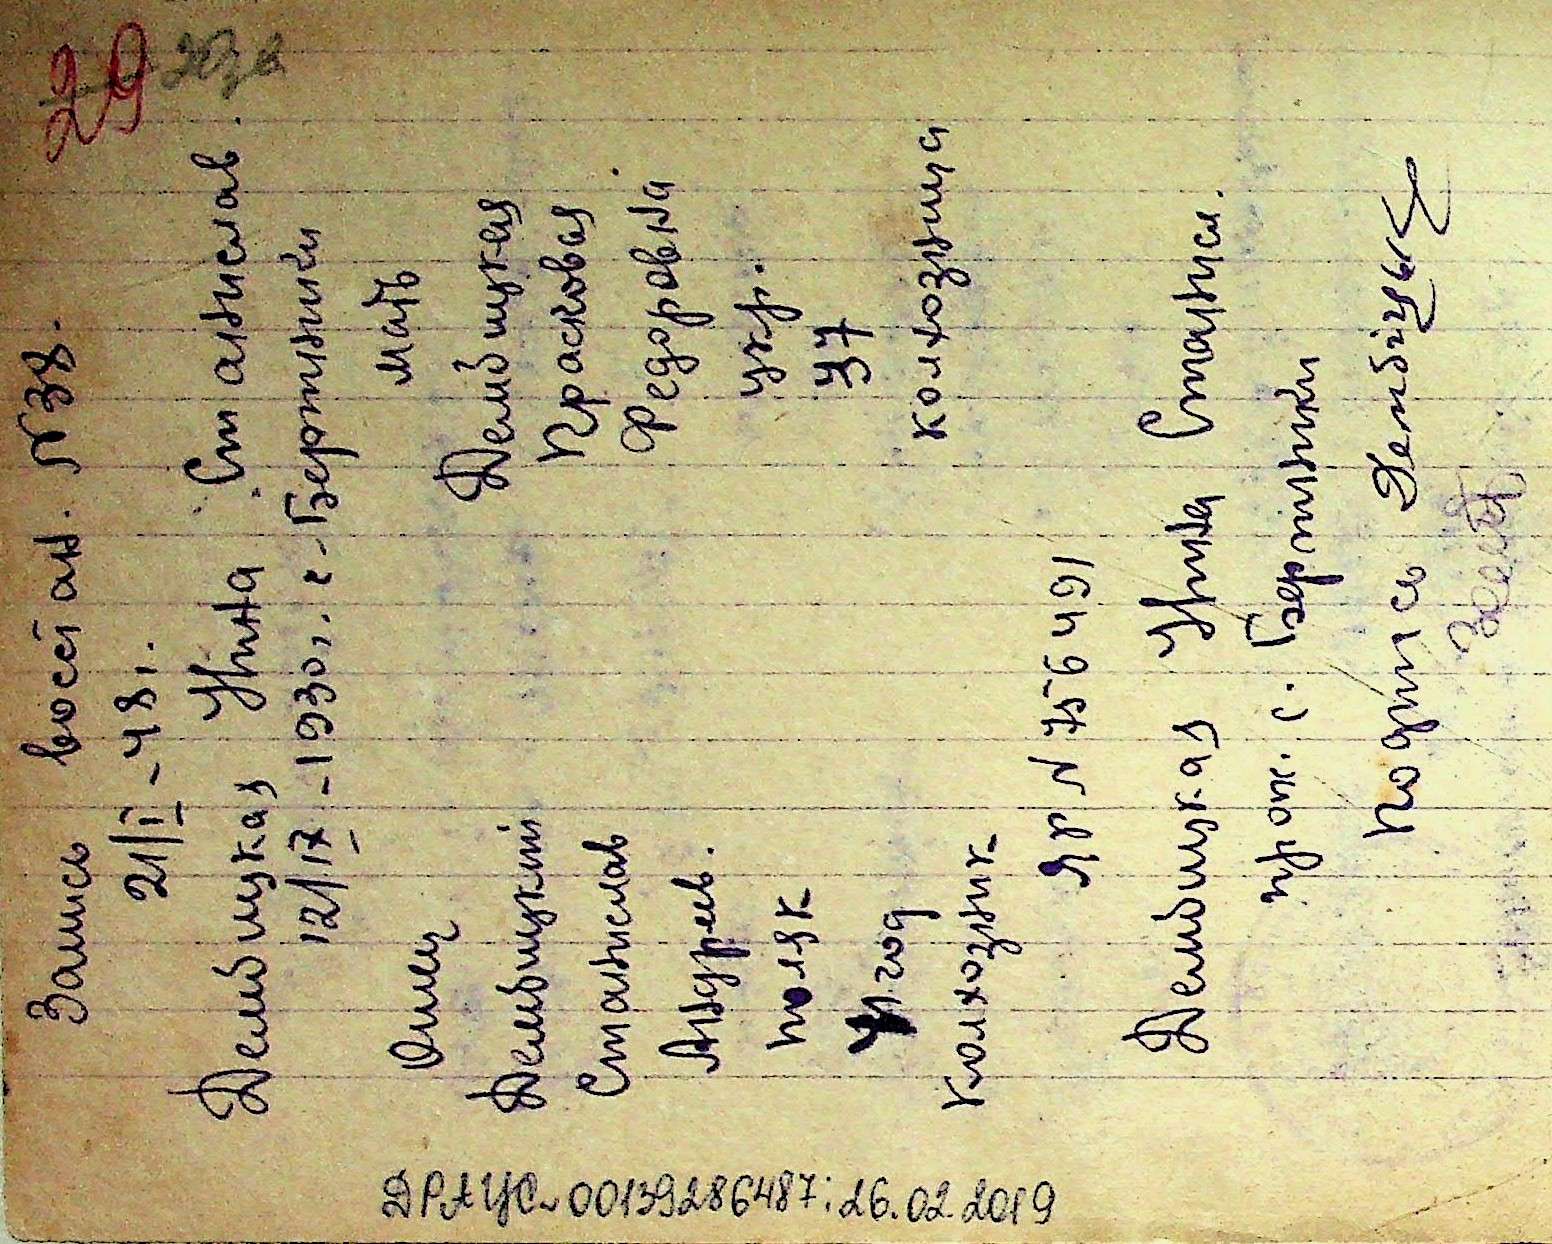 29
Запись восстан. N 38.
21/II - 48 г.
Дембицкая Нина Станислав.
12/IV - 1930 г. с. Бертники
Отец мать
Дембицкий Дембицкая
Станислав Прасковая
Андреев. Федоровна
поляк укр.
41 год 37
колхозник колхозница
ЯР N 756491
Дембицкая Нина Станисл.
прож. с. Бертники
Подпись Дембіцк
ДРАЦС-00139286487; 26.02.2019